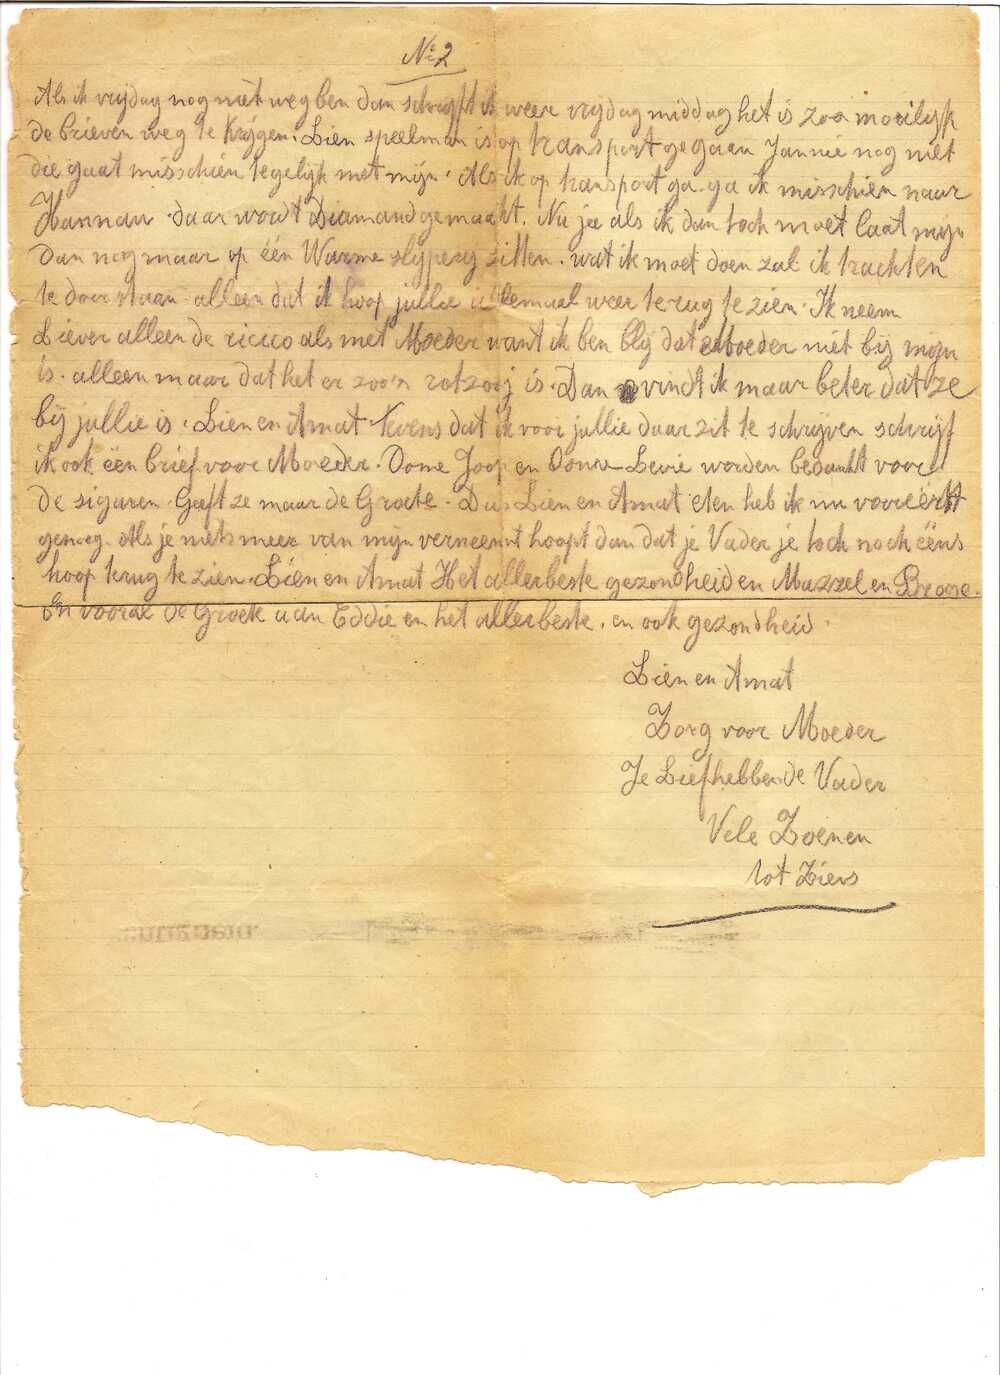 No 2
Als ik vrijdag nog niet weg ben dan schrijft ik weer vrijdag middag het is zoo moeilijk
de brieven weg te krijgen. Lien speelman is op transport gegaan Jannie nog niet
die gaat misschien tegelijk met mijn. Als ik op transport ga. ga ik misschien naar
Hannau. daar wordt Diamand gemaakt. Nu ja als ik dan toch moet laat mijn
dan nog maar op één Warme slijperij zitten. wat ik moet doen zal ik trachten
te doorstaan alleen dat ik hoop jullie allemaal weer terug te zien. Ik neem
Liever alleen de riccco als met Moeder want ik ben blij dat Moeder niet bij mijn
is. alleen maar dat het er zoo'n rotzooj is. Dan vindt ik maar beter dat ze
bij jullie is. Lien en Amat tevens dat ik voor jullie daar zit te schrijven schrijf
ik ook één brief voor Moeder. Oome Joop en Oome Levie worden bedankt voor
de sigaren. Geeft ze maar de Groete. Dus Lien en Amat eten heb ik nu vooreerst
genoeg. Als je niets meer van mijn verneemt hoopt dan dat je Vader je toch noch ééns
hoop terug te zien. Lien en Amat Het allerbeste gezondheid en Mazzel en Broge.
En vooral de Groete aan Eddie en het allerbeste. en ook gezondheid.
Lien en Amat
Zorg voor Moeder
Je Liefhebbende Vader
Vele Zoenen
tot Ziens